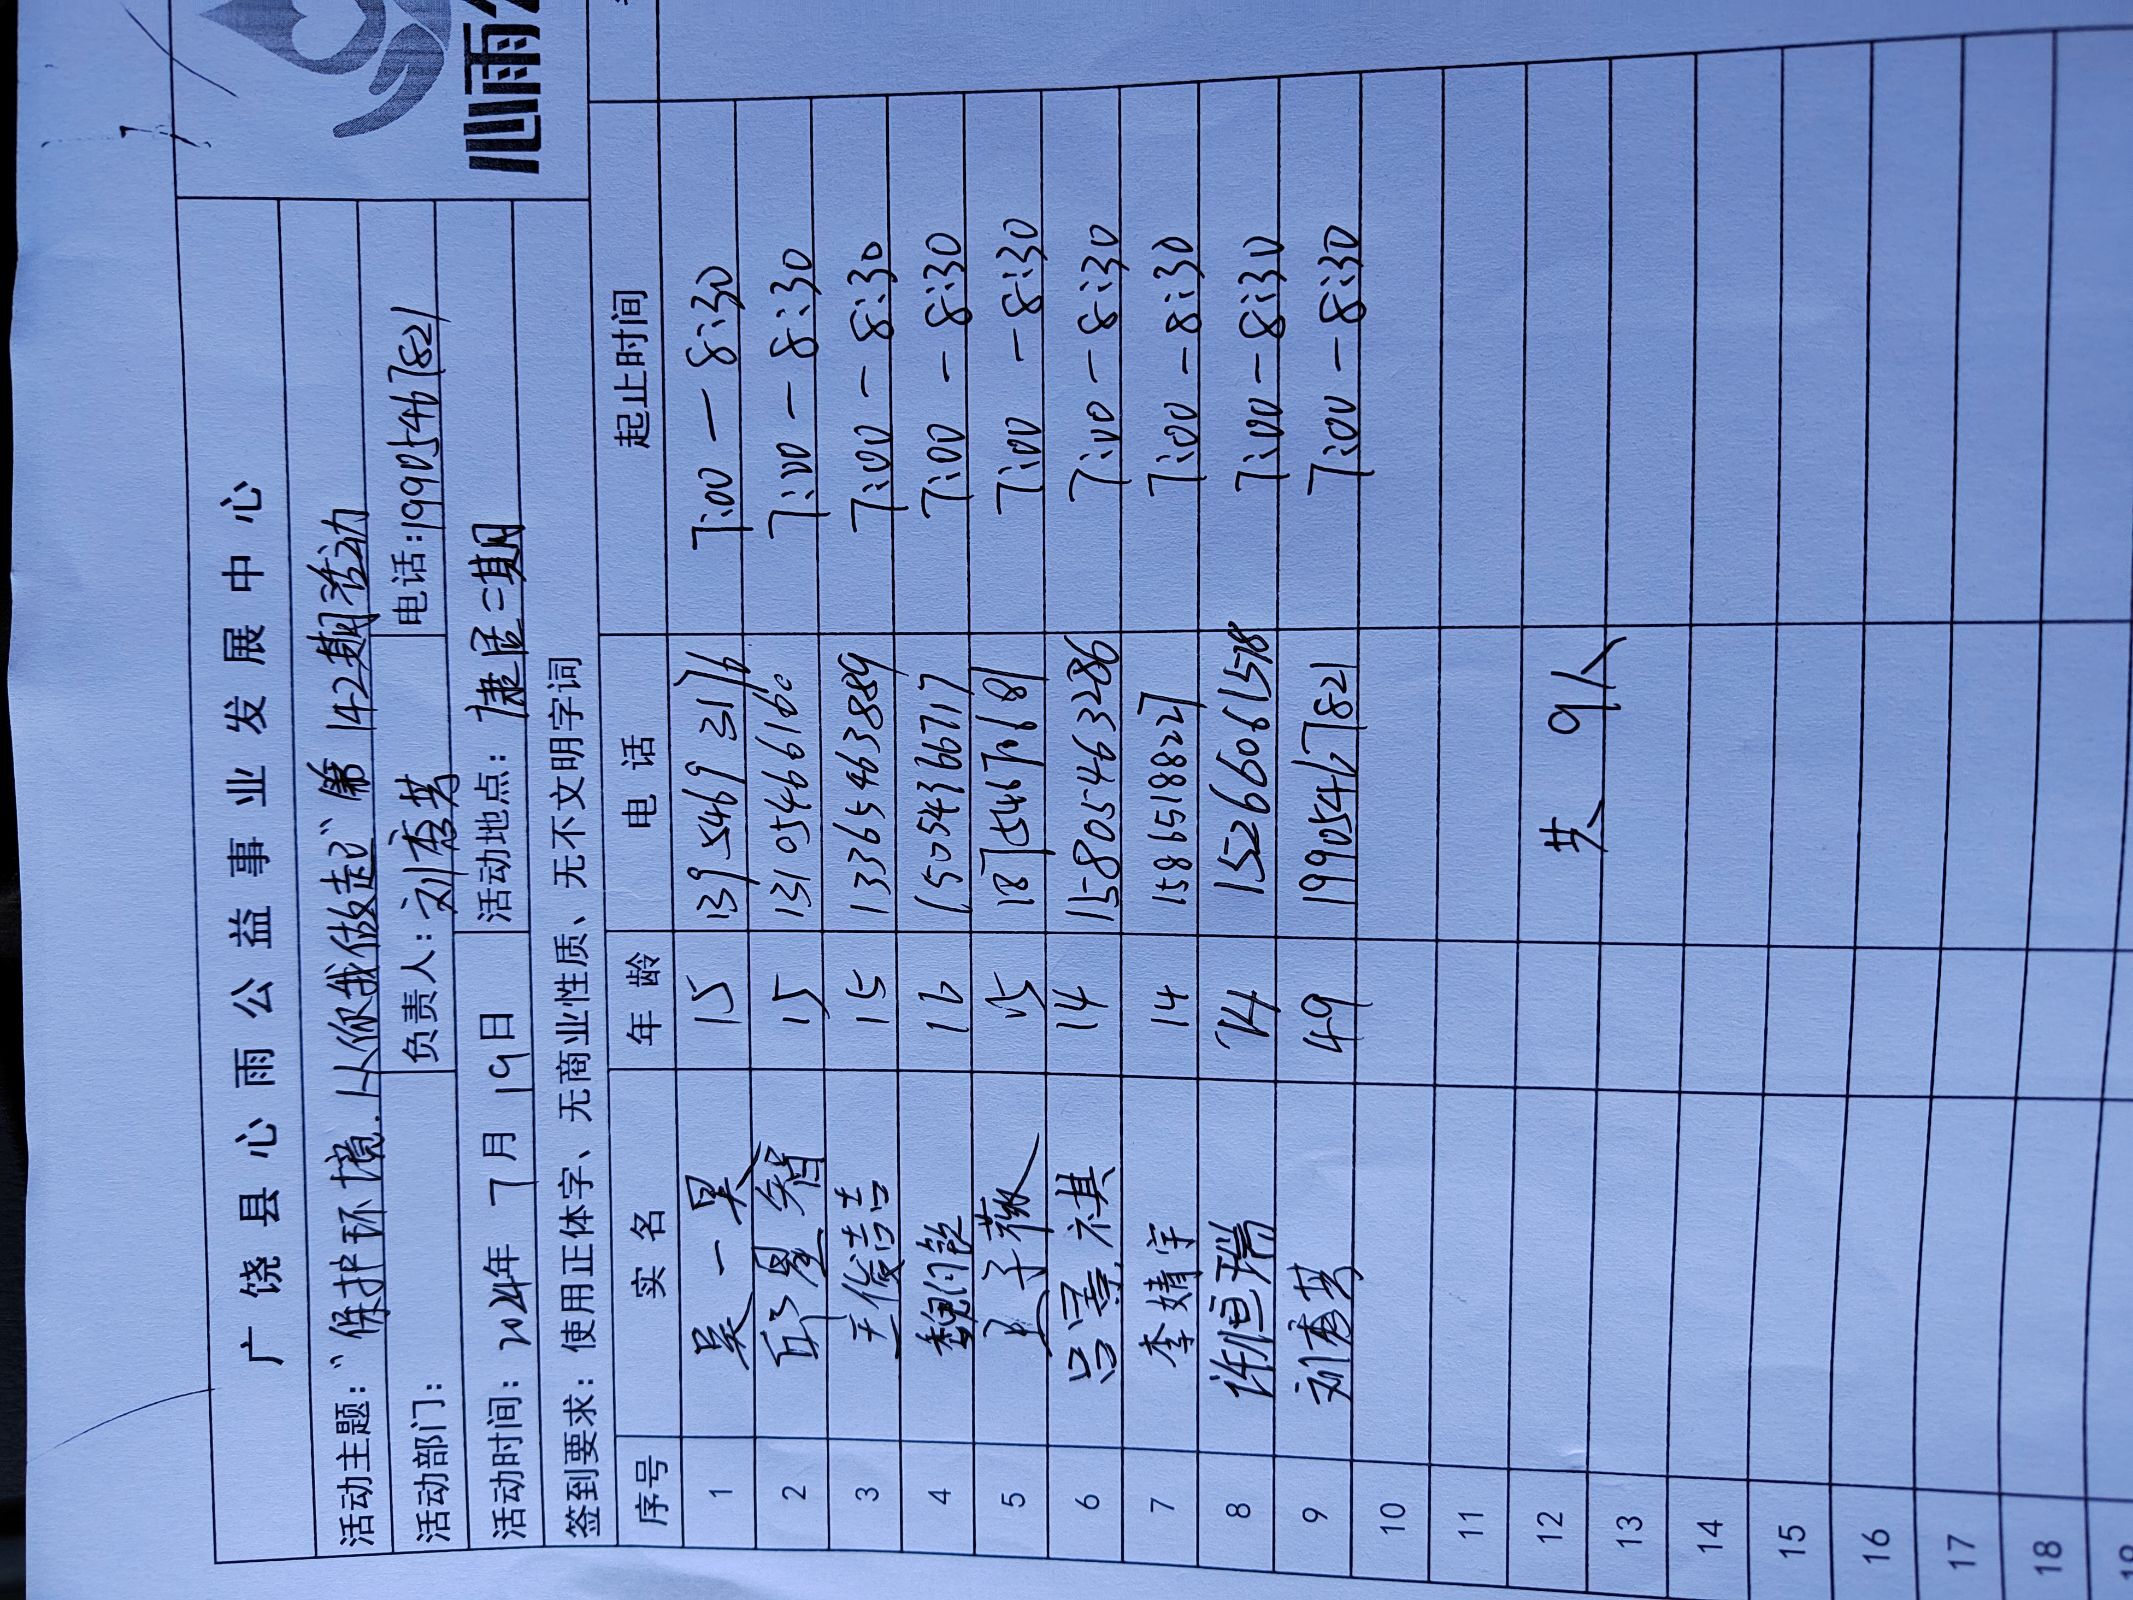 广饶县心雨公益事业发展中心
心雨公
活动主题:“保护环境.从你我做起”第142期活动
活动部门: 负责人:刘秀芳 电话:19905467821
活动时间:2024年7月19日 活动地点:康居二期
签到要求:使用正体字、无商业性质、无不文明字词
序号 实名 年龄 电话 起止时间
1 吴一昊 15 139546931 7:00-8:30
2 邱星智 15 13105466160 7:00-8:30
3 王俊喆 15 13365463889 7:00-8:30
4 魏 16 15054366717 7:00-8:30
5 王子薇 15 7:00-8:30
6 吕景祺 14 15805463286 7:00-8:30
7 李婧宇 14 15865188227 7:00-8:30
8 许恒瑞 14 15266061578 7:00-8:30
9 刘秀芳 49 19905467821 7:00-8:30
10
11
12 共9人
13
14
15
16
17
18
19